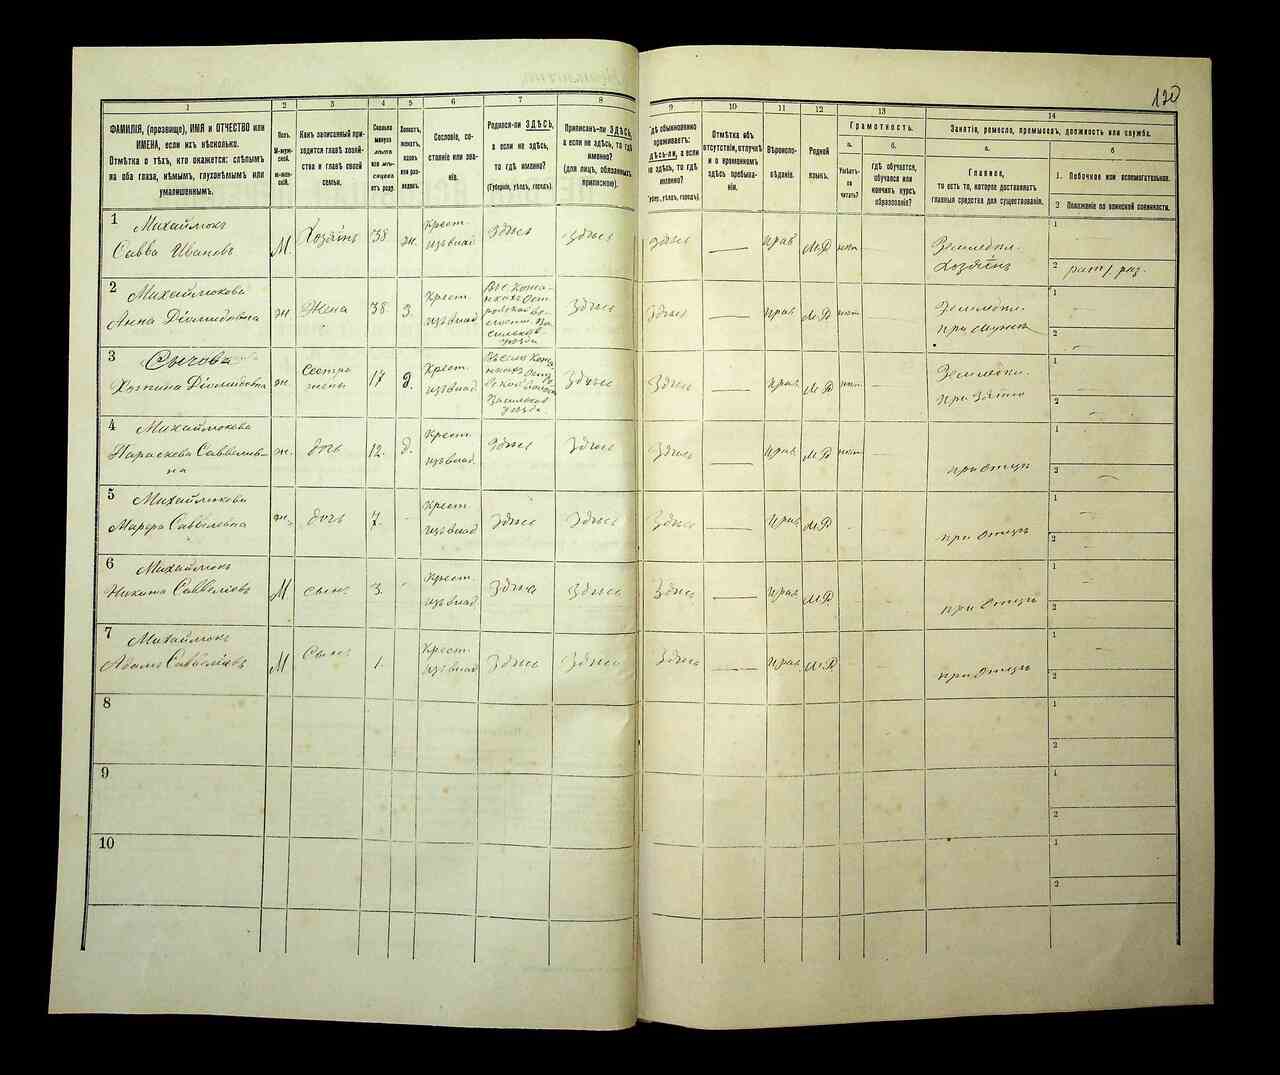 120
1
2
3
4
5
6
7
8
9
10
11
12
13
14
ФАМИЛІЯ, (прозвище), ИМЯ и ОТЧЕСТВО или
ИМЕНА, если ихъ нѣсколько.
Отмѣтка о тѣхъ, кто окажется: слѣпымъ
на оба глаза, нѣмымъ, глухонѣмымъ или
умалишеннымъ.
Полъ.
М-мужской.
Ж-женскій.
Какъ записанный приходится
главѣ хозяйства и главѣ своей
семьи.
Сколько
минуло
лѣтъ
или мѣсяцевъ
отъ роду.
Холостъ,
женатъ,
вдовъ
или разведенъ.
Сословіе, состояніе
или званіе.
Родился-ли ЗДѢСЬ,
а если не здѣсь,
то гдѣ именно?
(Губернія, уѣздъ, городъ).
Приписанъ-ли ЗДѢСЬ,
а если не здѣсь, то гдѣ
именно?
(для лицъ, обязанныхъ
припискою).
Гдѣ обыкновенно
проживаетъ:
здѣсь-ли, а если
не здѣсь, то гдѣ
именно?
(Губер., уѣздъ, городъ).
Отмѣтка объ
отсутствіи, отлучкѣ
и о временномъ
здѣсь пребываніи.
Вѣроисповѣданіе.
Родной
языкъ.
Грамотность.
а.
Умѣетъ-ли
читать?
б.
гдѣ обучается,
обучался или
кончилъ курсъ
образованія?
Занятіе, ремесло, промыселъ, должность или служба.
а.
Главное,
то есть то, которое доставляетъ
главныя средства для существованія.
б
1. Побочное или вспомогательное.
2 Положеніе по воинской повинности.
1
Михайлюкъ
Савва Ивановъ
М.
Хозяинъ
38
ж.
Крест.
изъ влад.
Здѣсь
Здѣсь
Здѣсь
Прав.
М.Р.
нѣтъ
Земледѣл.
Хозяинъ
1
2
рат. 1 раз.
2
Михайлюкова
Анна Діомидовна
ж
Жена
38.
З.
Крест.
изъ влад.
Здѣсь
Здѣсь
Прав.
М.Р.
нѣт.
Земледѣл.
при мужѣ
1
2
3
Сычова
Діомидовна
ж.
Сестра
жены
17
д.
Крест.
изъ влад.
Здѣсь
Здѣсь
Прав.
М.Р.
нѣт.
Земледѣл.
при зятѣ
1
2
4
Михайлюкова
Параскева Саввелив
на
ж.
дочь
12.
д.
Крест.
изъ влад.
Здѣсь
Здѣсь
Здѣсь
Прав.
М.Р.
нѣт.
при Отцѣ
1
2
5
Михайлюкова
Марфа Саввелевна
ж.
дочь
7.
Крест.
изъ влад.
Здѣсь
Здѣсь
Здѣсь
Прав.
М.Р.
при Отцѣ
1
2
6
Михайлюкъ
Никита Саввеліевъ
М
сынъ
3.
Крест.
изъ влад.
Здѣсь
Здѣсь
Здѣсь
Прав.
М.Р.
при Отцѣ
1
2
7
Михайлюкъ
Адамъ Саввеліевъ
М
Сынъ
1.
Крест.
изъ влад.
Здѣсь
Здѣсь
Здѣсь
Прав.
М.Р.
при Отцѣ
1
2
8
1
2
9
1
2
10
1
2